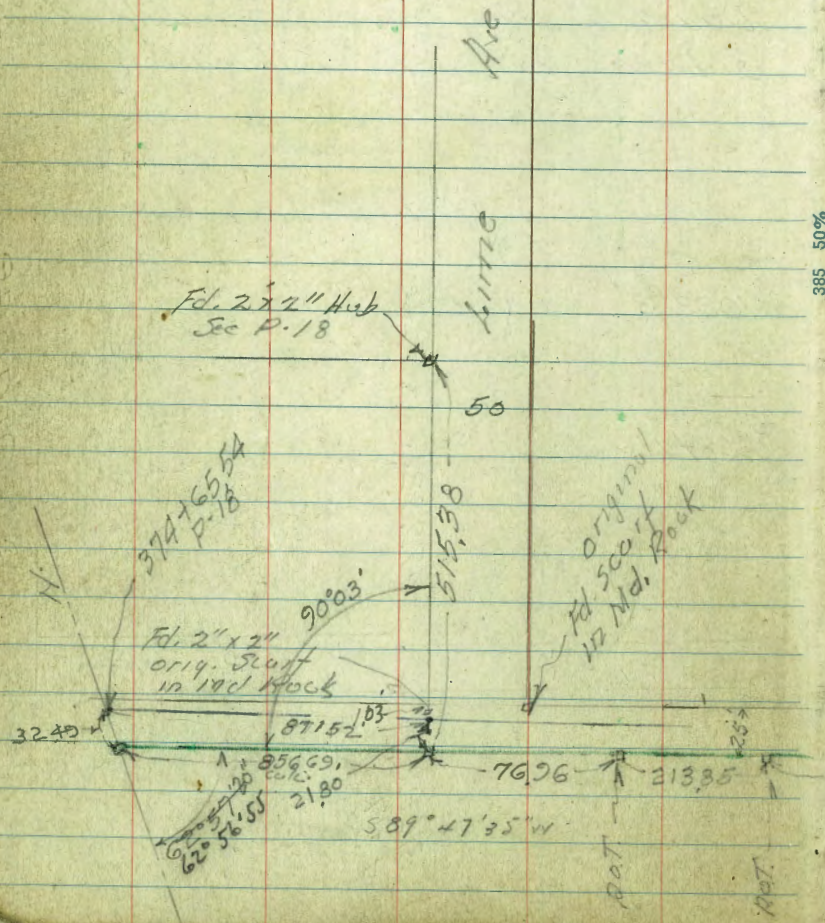 Ave
Lime
385 50%
Fd. 2"x2" Hub
See P-18
50
515.38
374+65.54
P-18
original
Fd. Scart
in Md. Rock
N.
90°03'
Fd. 2"x2"
orig. Scart
in md Rock
871.52
1.03
32.49
856.69
calc.
21.80
76.96
213.85
25'
62°57'20"
62°56.55
S 89°47'35" W
P.O.T.
P.O.T.